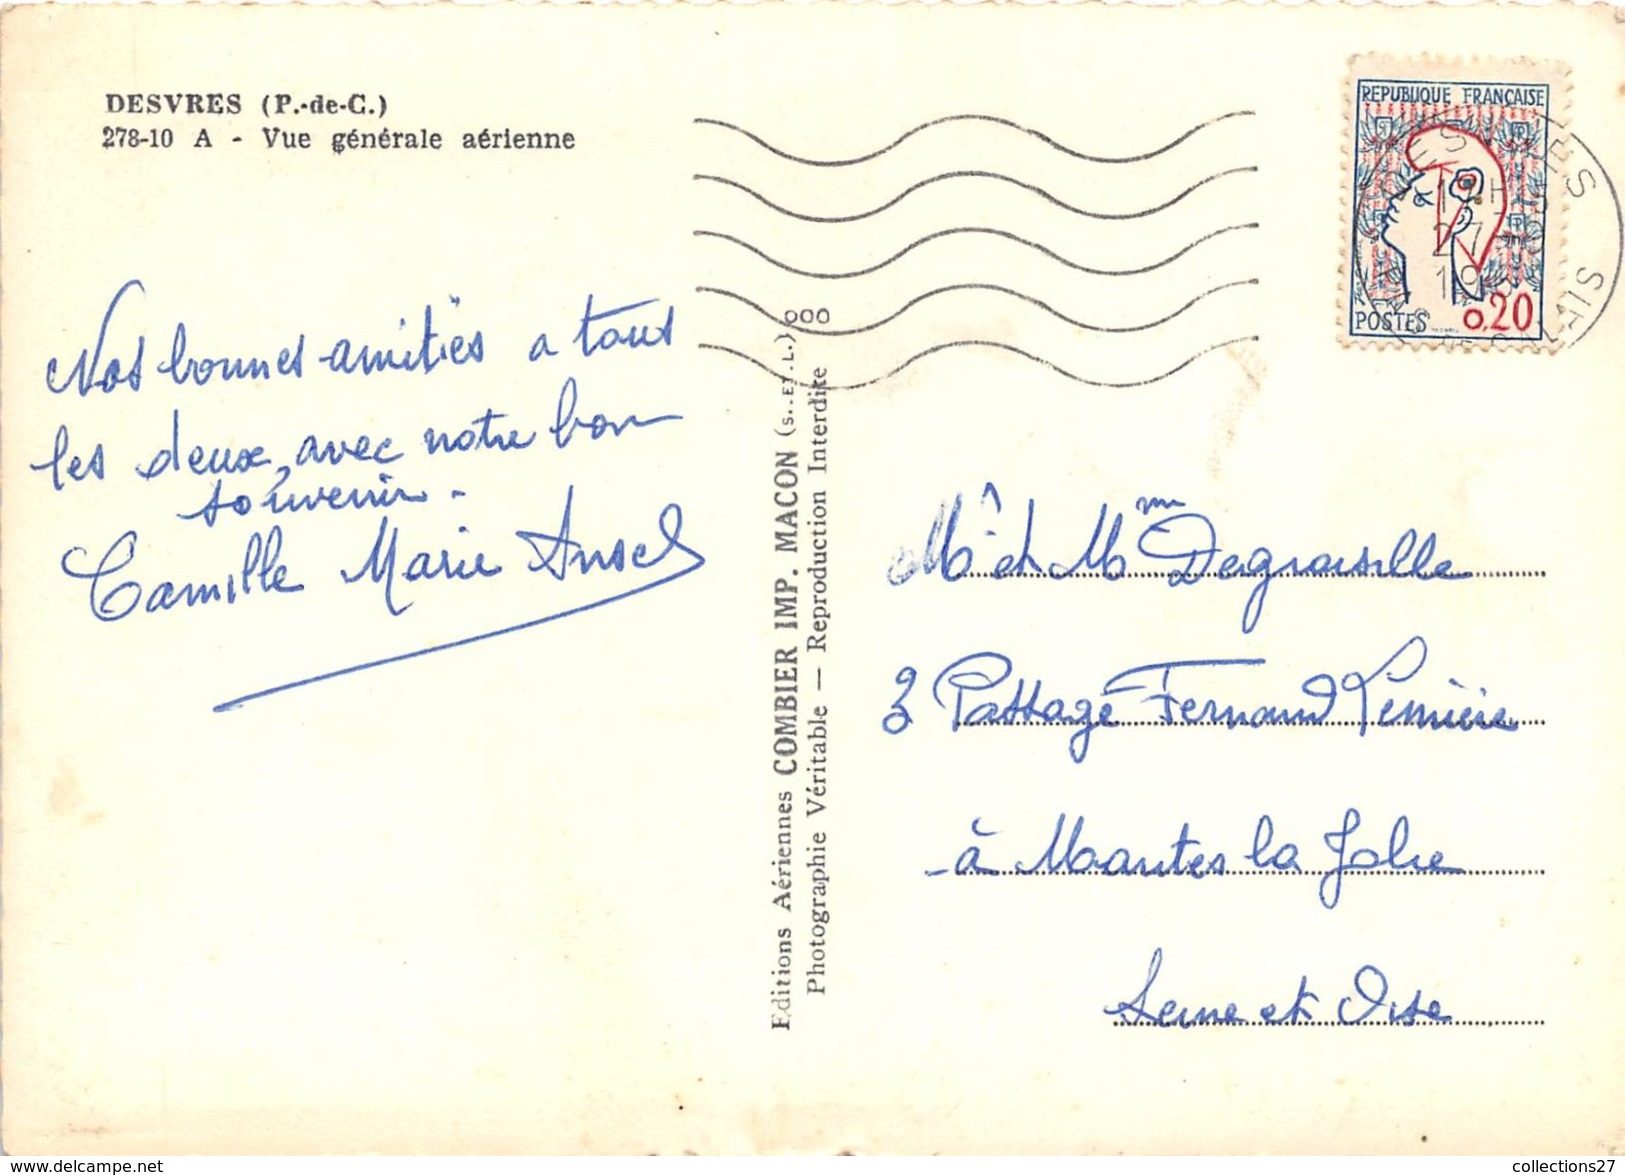 DESVRES (P.-de-C.)
278-10 A - Vue générale aérienne
Nos bonnes amitiés a tous
les deux, avec notre bon
souvenir.
Camille Marie Ansel
Editions Aériennes COMBIER IMP. MACON (S.-ET-L.) ooo
Photographie Véritable — Reproduction Interdite
REPUBLIQUE FRANÇAISE
POSTES 0,20
DESVRES
PAS DE CALAIS
Mr et Mme
3 Passage Fernand
à Mantes la Jolie
Seine et Oise
collections27